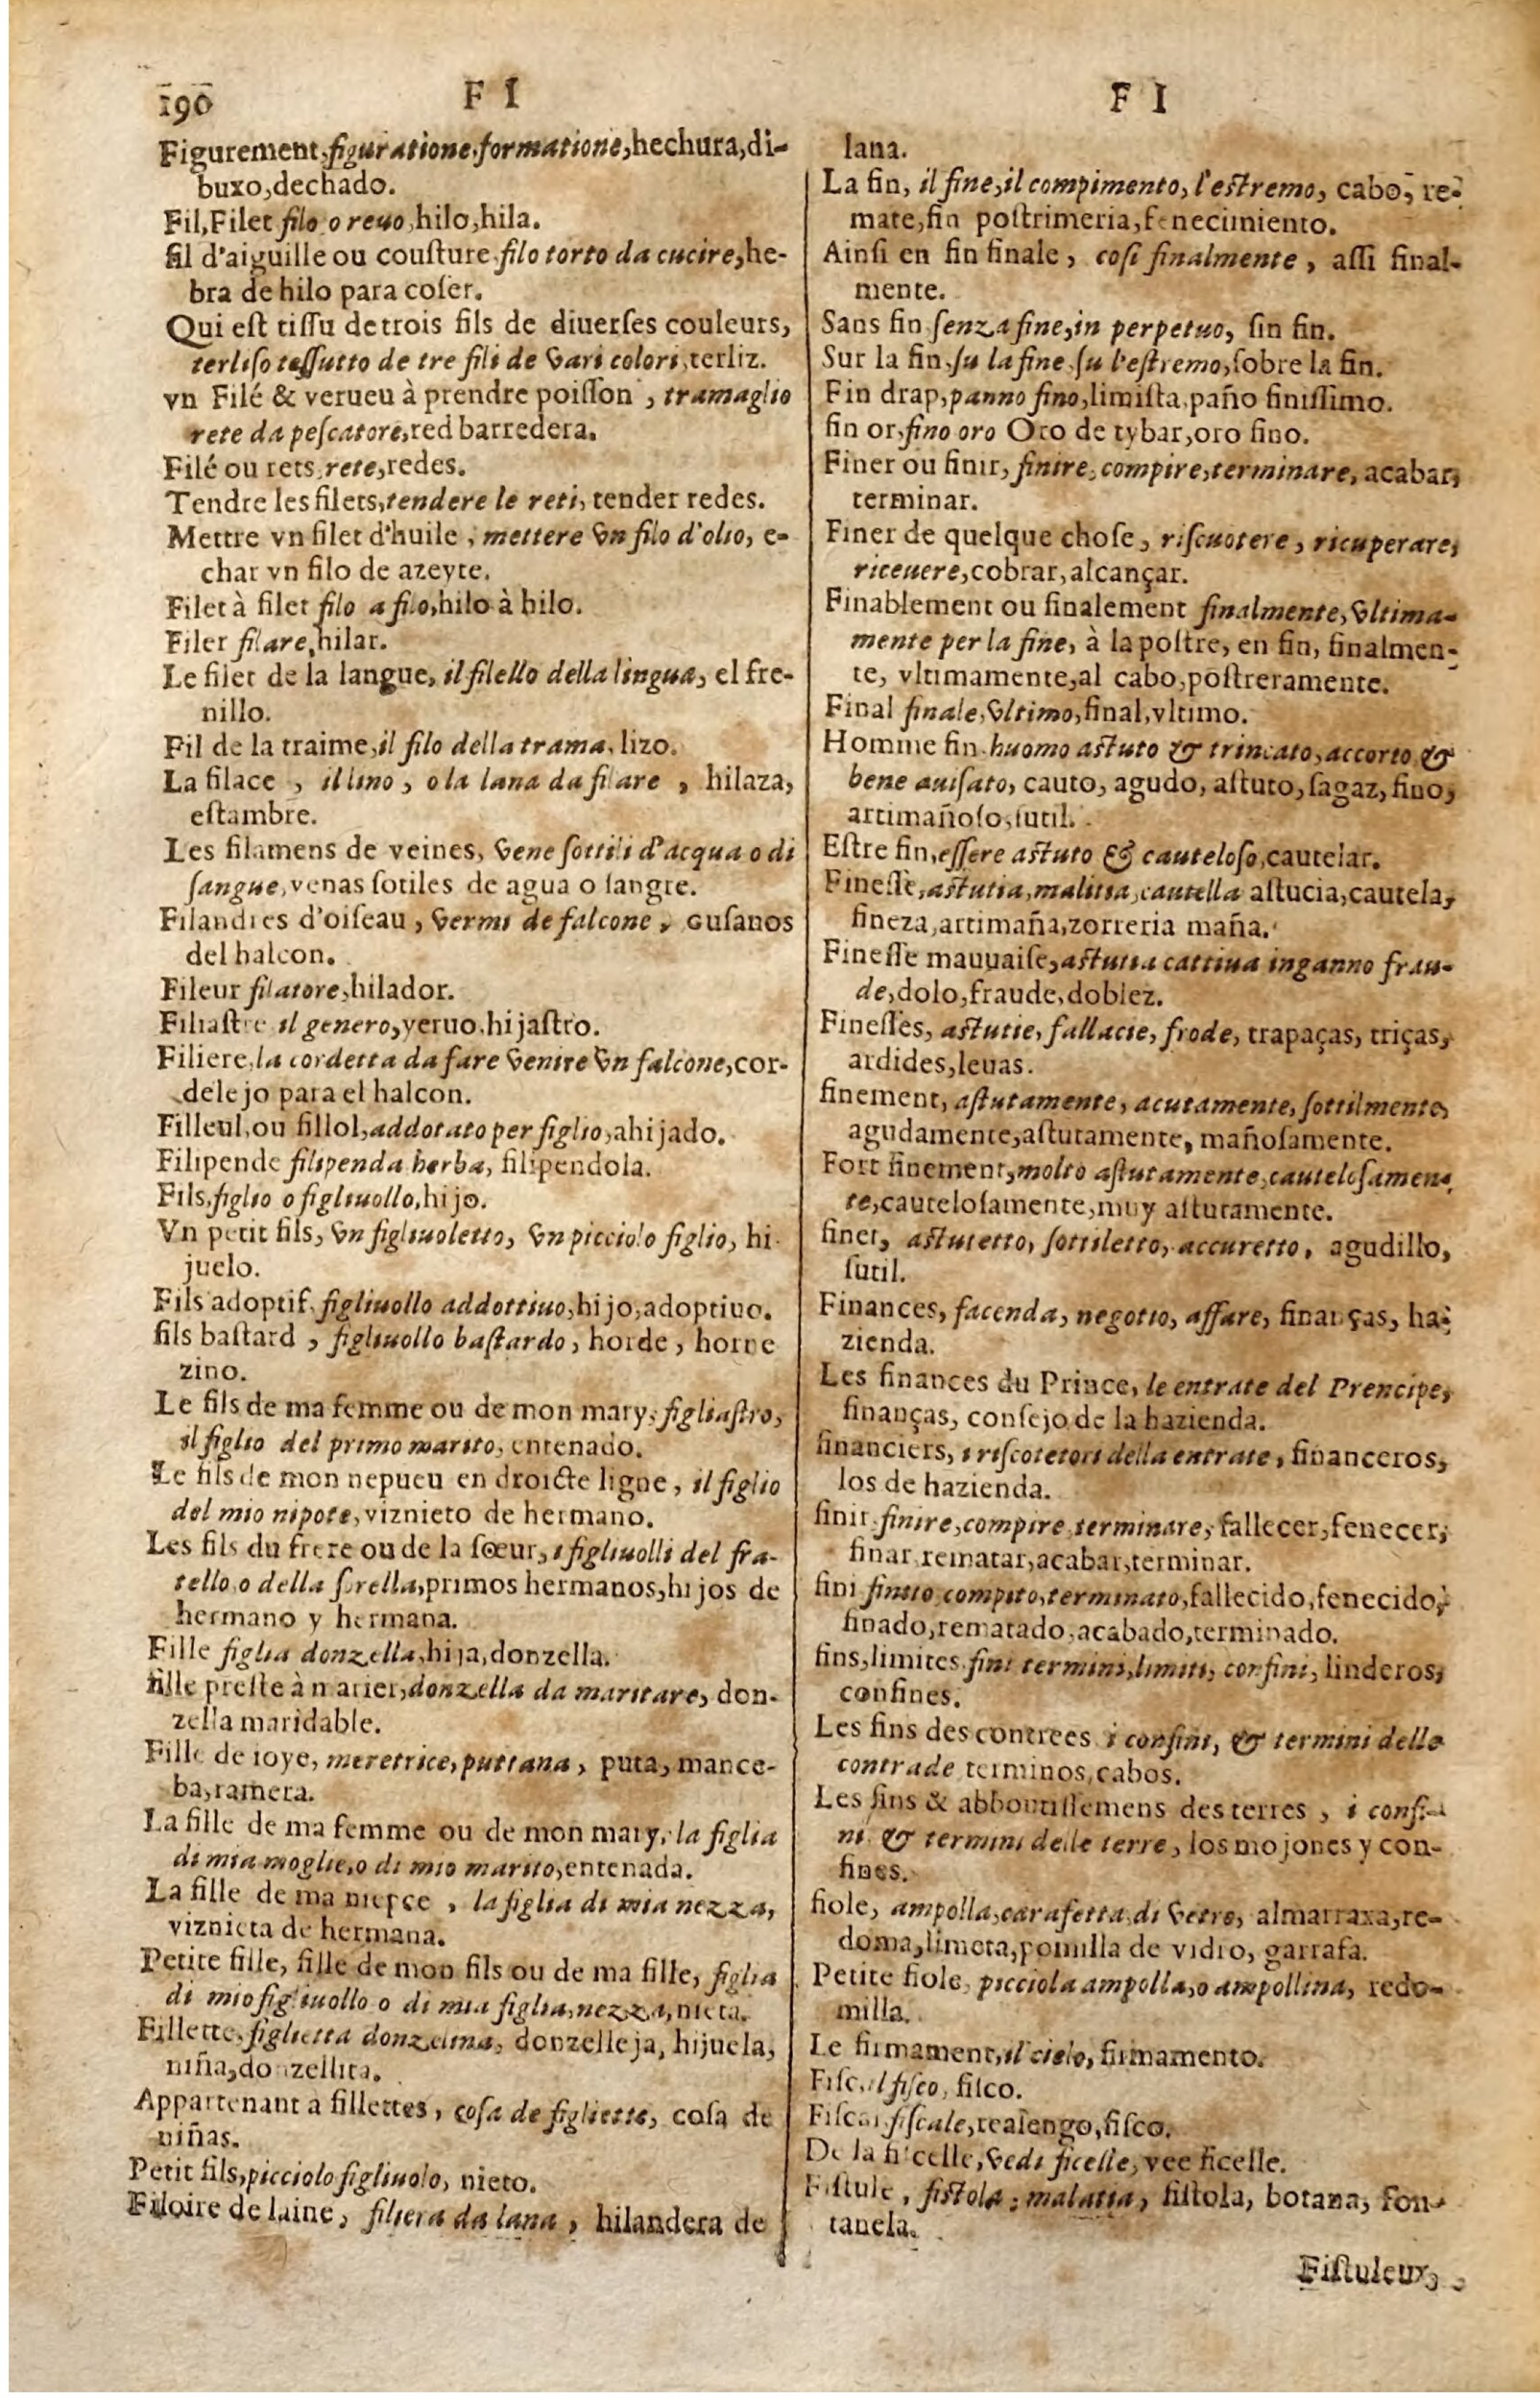 190
F I
Figurement, figuratione, formatione, hechura, di-
buxo, dechado.
Fil, Filet filo o reuo, hilo, hila.
fil d'aiguille ou couſture, filo torto da cucire, he-
bra de hilo para coſer.
Qui eſt tiſſu de trois fils de diuerſes couleurs,
terliſo teſſutto de tre fili de vari colori, terliz.
vn Filé & verueu à prendre poiſſon, tramaglio
rete da peſcatore, red barredera.
Filé ou rets, rete, redes.
Tendre les filets, tendere le reti, tender redes.
Mettre vn filet d'huile, mettere vn filo d'olio, e-
char vn filo de azeyte.
Filet à filet filo a filo, hilo à hilo.
Filer filare, hilar.
Le filet de la langue, il filello della lingua, el fre-
nillo.
Fil de la traime, il filo della trama, lizo.
La filace, il lino, o la lana da filare, hilaza,
eſtambre.
Les filamens de veines, vene ſottili d'acqua o di
ſangue, venas ſotiles de agua o ſangre.
Filandres d'oiſeau, vermi de falcone, Guſanos
del halcon.
Fileur filatore, hilador.
Filiaſtre il genero, yeruo, hijaſtro.
Filiere, la cordetta da fare venire vn falcone, cor-
delejo para el halcon.
Filleul, ou fillol, addotato per figlio, ahijado.
Filipende filipenda herba, filipendola.
Fils, figlio o figliuollo, hijo.
Vn petit fils, vn figliuoletto, vn picciolo figlio, hi
juelo.
Fils adoptif, figliuollo addottiuo, hijo, adoptiuo.
fils baſtard, figliuollo baſtardo, horde, horne
zino.
Le fils de ma femme ou de mon mary, figliaſtro,
il figlio del primo marito, entenado.
Le fils de mon nepueu en droicte ligne, il figlio
del mio nipote, viznieto de hermano.
Les fils du frere ou de la ſœur, i figliuolli del fra-
tello o della ſorella, primos hermanos, hijos de
hermano y hermana.
Fille figlia donzella, hija, donzella.
fille preſte à marier, donzella da maritare, don-
zella maridable.
Fille de ioye, meretrice, puttana, puta, mance-
ba, ramera.
La fille de ma femme ou de mon mary, la figlia
di mia moglie, o di mio marito, entenada.
La fille de ma niepce, la figlia di mia nezza,
viznieta de hermana.
Petite fille, fille de mon fils ou de ma fille, figlia
di mio figliuollo o di mia figlia, nezza, nieta.
Fillette, figlietta donzelina, donzelleja, hijuela,
niña, donzellita.
Appartenant a fillettes, coſa de figliette, coſa de
niñas.
Petit fils, picciolo figliuolo, nieto.
Filoire de laine, filiera da lana, hilandera de
F I
lana.
La fin, il fine, il compimento, l'eſtremo, cabo, re-
mate, fin poſtrimeria, fenecimiento.
Ainſi en fin finale, coſi finalmente, aſſi final-
mente.
Sans fin ſenza fine, in perpetuo, ſin fin.
Sur la fin, ſu la fine, ſu l'eſtremo, ſobre la fin.
Fin drap, panno fino, limiſta, paño finiſſimo.
fin or, fino oro Oro de tybar, oro fino.
Finer ou finir, finire, compire, terminare, acabar,
terminar.
Finer de quelque choſe, riſcuotere, ricuperare,
riceuere, cobrar, alcançar.
Finablement ou finalement finalmente, vltima-
mente per la fine, à la poſtre, en fin, finalmen-
te, vltimamente, al cabo, poſtreramente.
Final finale, vltimo, final, vltimo.
Homme fin huomo aſtuto & trincato, accorto &
bene auiſato, cauto, agudo, aſtuto, ſagaz, fino,
artimañoſo, ſutil.
Eſtre fin, eſſere aſtuto & cauteloſo, cautelar.
Fineſſe, aſtutia, malitia, cautella aſtucia, cautela,
fineza, artimaña, zorreria maña.
Fineſſe mauuaiſe, aſtutia cattiua inganno frau-
de, dolo, fraude, doblez.
Fineſſes, aſtutie, fallacie, frode, trapaças, triças,
ardides, leuas.
finement, aſtutamente, acutamente, ſottilmente,
agudamente, aſtutamente, mañoſamente.
Fort finement, molto aſtutamente, cauteloſamen-
te, cauteloſamente, muy aſtutamente.
finet, aſtutetto, ſottiletto, accuretto, agudillo,
ſutil.
Finances, facenda, negotio, affare, finanças, ha-
zienda.
Les finances du Prince, le entrate del Prencipe,
finanças, conſejo de la hazienda.
financiers, i riſcotetori della entrate, financeros,
los de hazienda.
finir finire, compire, terminare, fallecer, fenecer,
finar, rematar, acabar, terminar.
fini finito, compito, terminato, fallecido, fenecido,
finado, rematado, acabado, terminado.
fins, limites fini termini, limiti, confini, linderos,
confines.
Les fins des contrees i confini, & termini delle
contrade terminos, cabos.
Les fins & abboutiſſemens des terres, i confi-
ni & termini delle terre, los mojones y con-
fines.
fiole, ampolla, carafetta, di vetro, almarraxa, re-
doma, limeta, pomilla de vidro, garrafa.
Petite fiole, picciola ampolla, o ampollina, redo-
milla.
Le firmament, il cielo, firmamento.
Fiſc, il fiſco, fiſco.
Fiſcal fiſcale, realengo, fiſco.
De la fiſcelle, vedi ficelle, vee ficelle.
Fiſtule, fiſtola, malatia, fiſtola, botana, fon-
tanela.
Fiſtuleux,